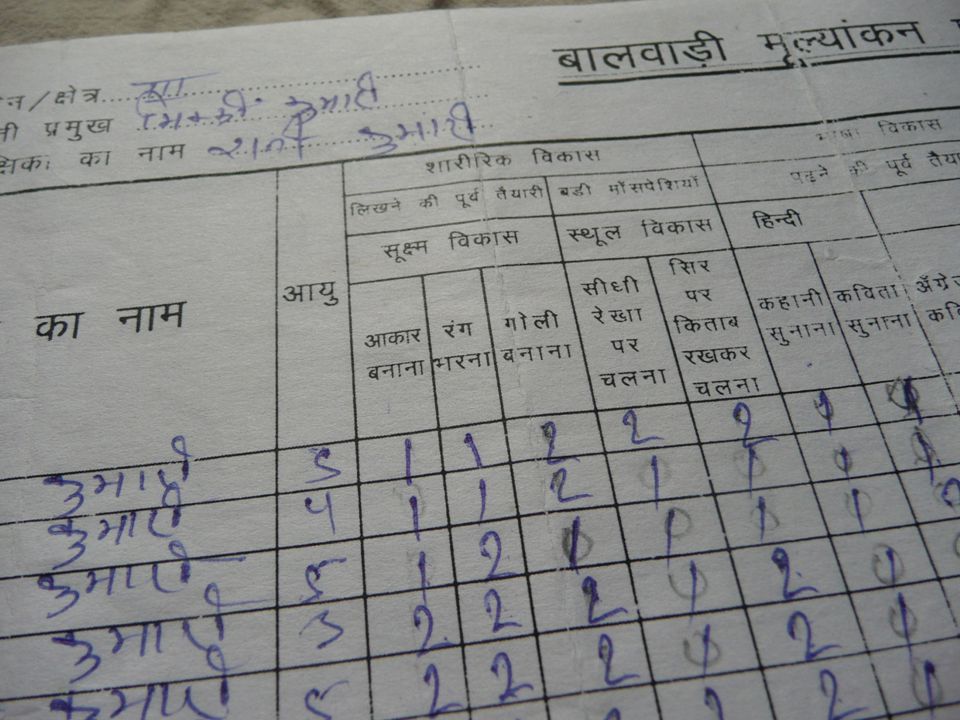 बालवाड़ी मूल्यांकन
न/क्षेत्र
नी प्रमुख कुमारी
क्षिकः का नाम रानी कुमारी
शारीरिक विकास
भाषा विकास
लिखने की पूर्व तैयारी
बडी माँसपेशियाँ
पढ़ने की पूर्व तैया
सूक्ष्म विकास
स्थूल विकास
हिन्दी
का नाम
आयु
आकार बनाना
रंग भरना
गोली बनाना
सीधी रेखा पर चलना
सिर पर किताब रखकर चलना
कहानी सुनाना
कविता सुनाना
अँग्रेज कवि
कुमारी 5 1 1 2 2 2 1 1
कुमारी 4 1 1 2 1 1 1 1
कुमारी 5 1 2 1 1 1 1 2
कुमारी 5 2 2 2 1 2 1
कुमारी 5 2 2 2 1 2 1
2 2 2 1